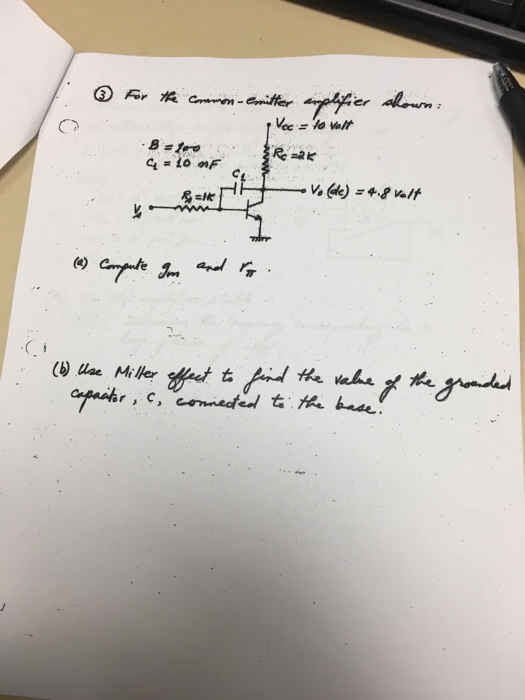 ③ For the common-emitter amplifier shown:
Vcc = 10 Volt
B = 100
C₁ = 10 nF
Rc = 2K
C₁
V₀ (dc) = 4.8 Volt
R₁ = 1K
(a) Compute gm and rπ.
(b) Use Miller effect to find the value of the grounded
capacitor, C, connected to the base.